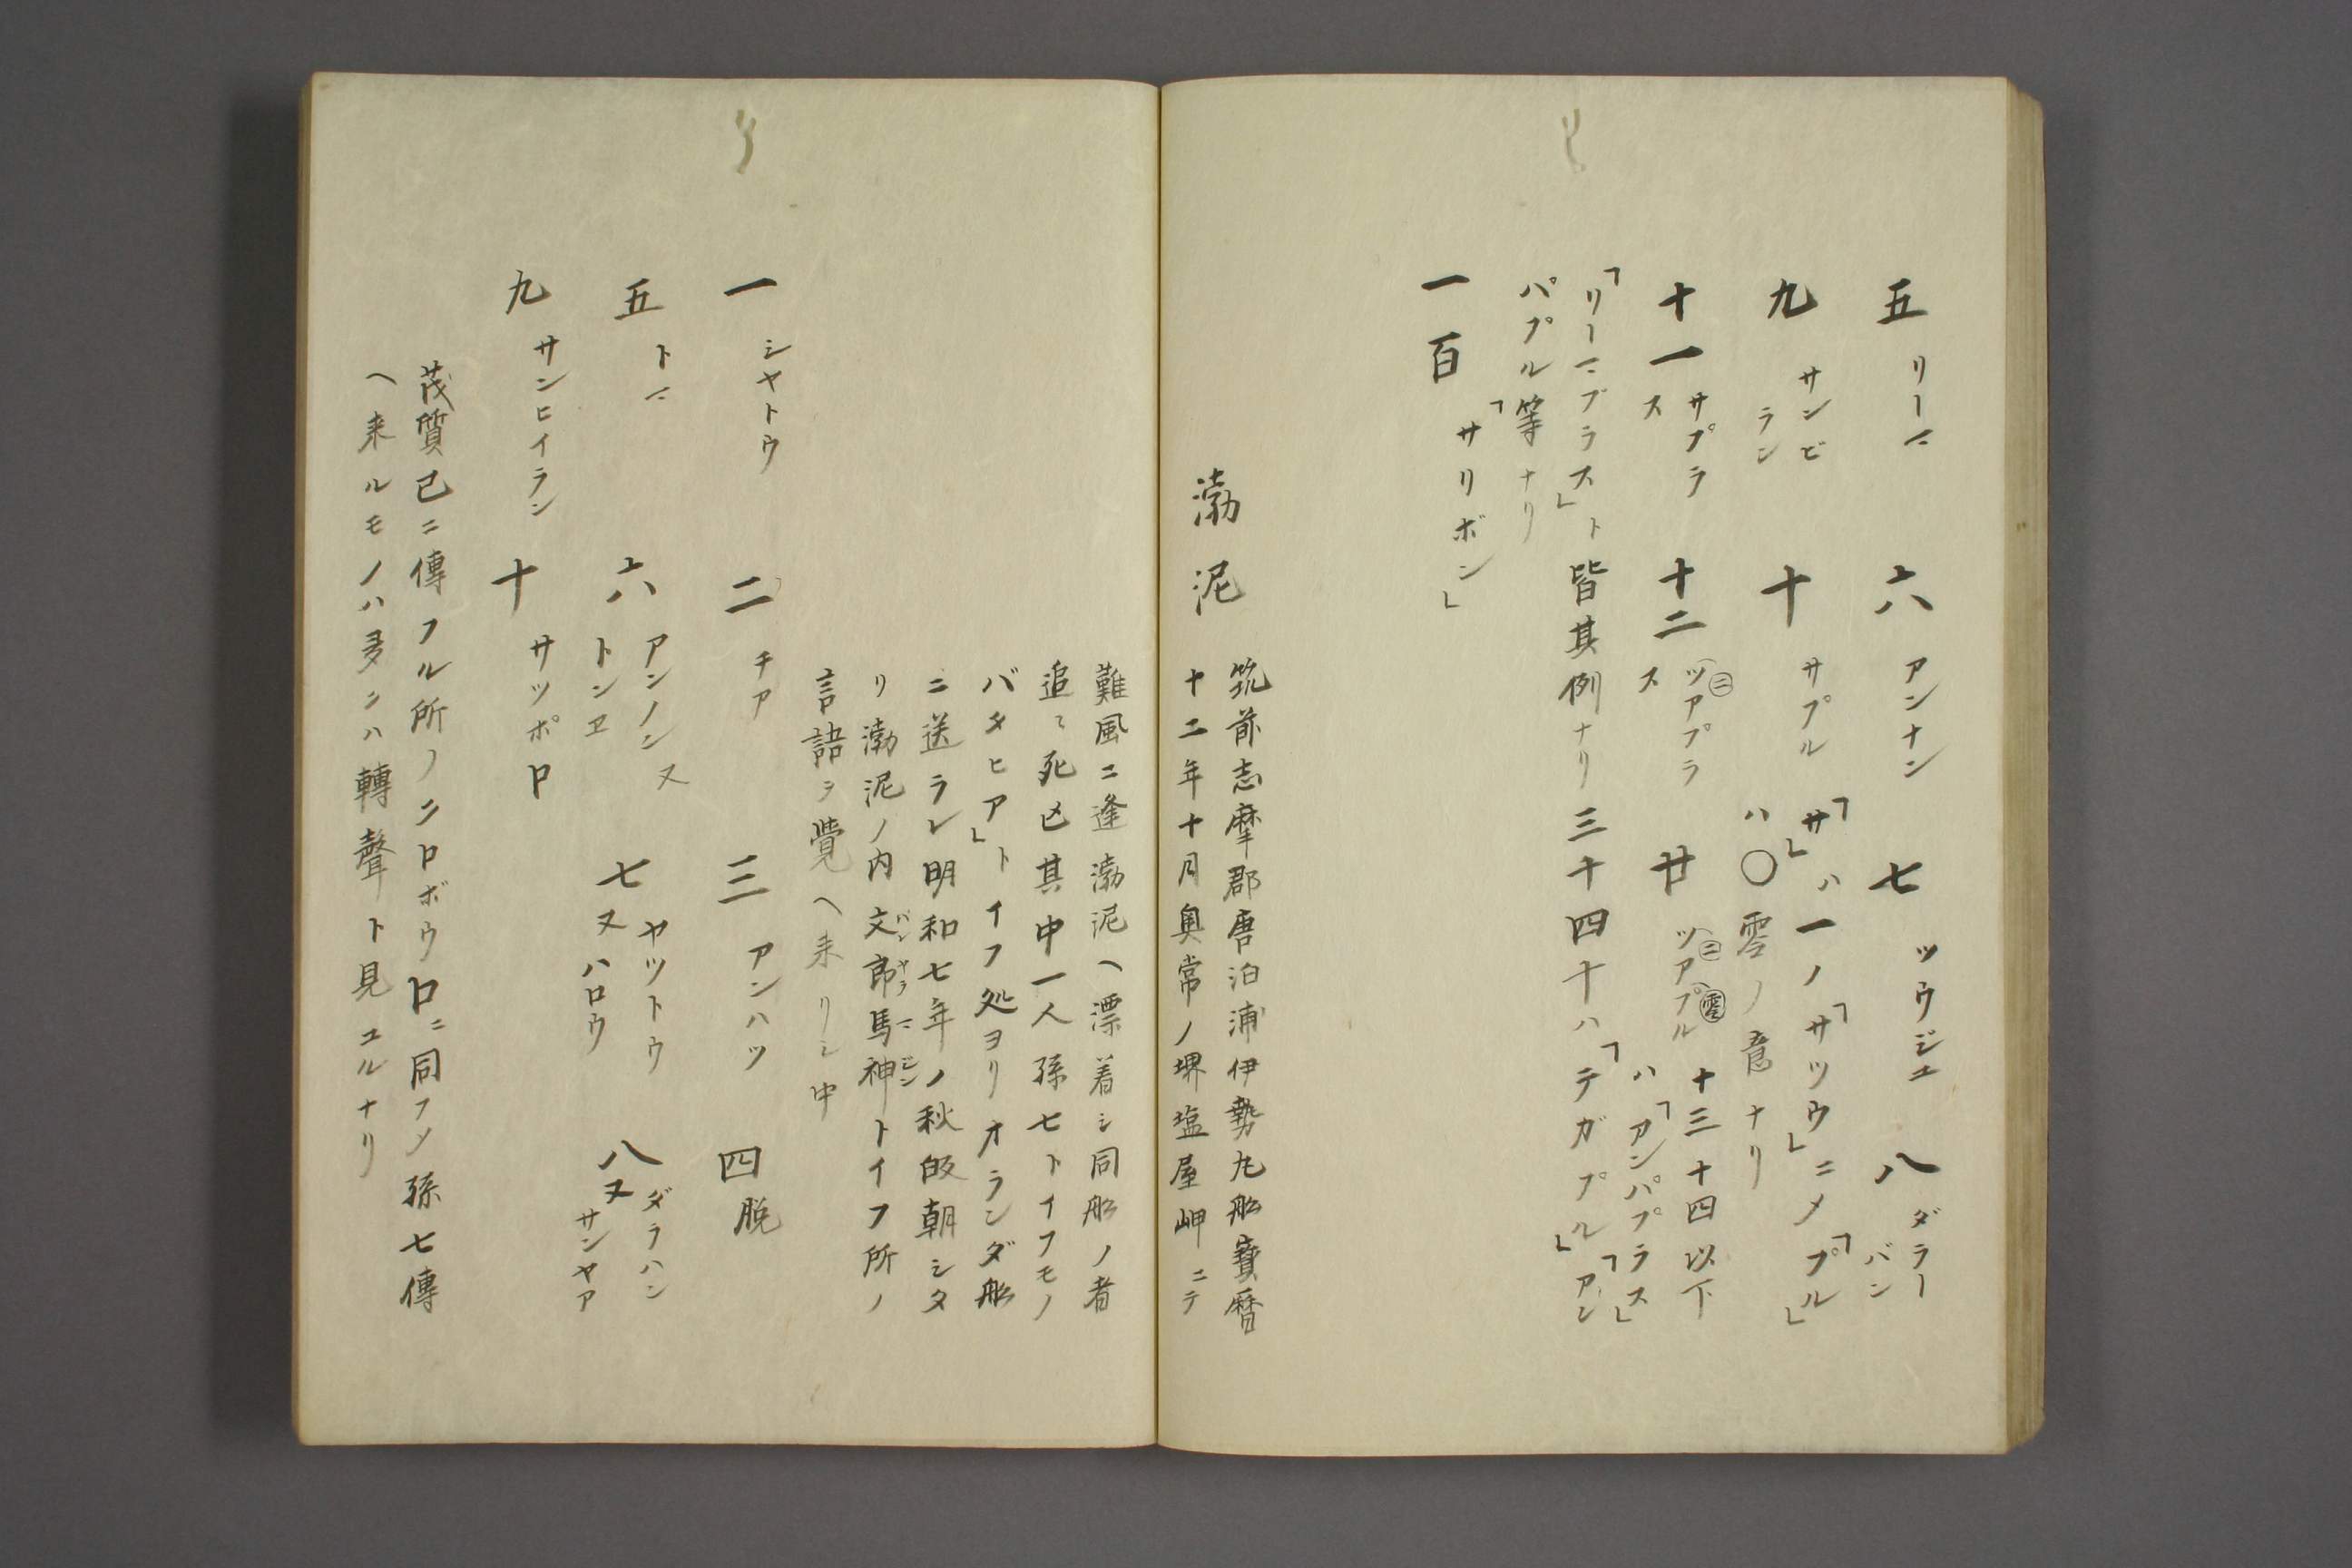 五 リーマ 六 アンナン 七 ツウジユ 八 ダラーバン
九 サンビラン 十 サプル 「サ」ハ一ノ「サツウ」ニメ「プル」
ハ〇零ノ意ナリ
十一 サプラス 十二 ツアプラス 廿 ツアプル 十三十四以下
ハ「アンパプラス」
「リーマブラス」ト皆其例ナリ三十四十ハ「テガプル」「アン
パプル等ナリ
一百 「サリボン」
渤泥 筑前志摩郡唐泊浦伊勢丸船寳暦
十二年十月奥常ノ堺塩屋岬ニテ
難風ニ逢渤泥ヘ漂着シ同船ノ者
追〻死亡其中一人孫七トイフモノ
バタヒア」トイフ処ヨリオランダ船
ニ送ラレ明和七年ノ秋皈朝シタ
リ渤泥ノ内文郎馬神トイフ所ノ
言語ヲ覺ヘ来リシ中
一 シヤトウ 二 チア 三 アンハツ 四 脱
五 トマ 六 アンノン 又 トンヱ 七 ヤツトウ 又 ハロウ 八 ダラハン 又 サンヤア
九 サンヒイラン 十 サツポロ
茂質已ニ傳フル所ノニロボウロニ同フメ孫七傳
ヘ来ルモノハ多シハ轉聲ト見ユルナリ